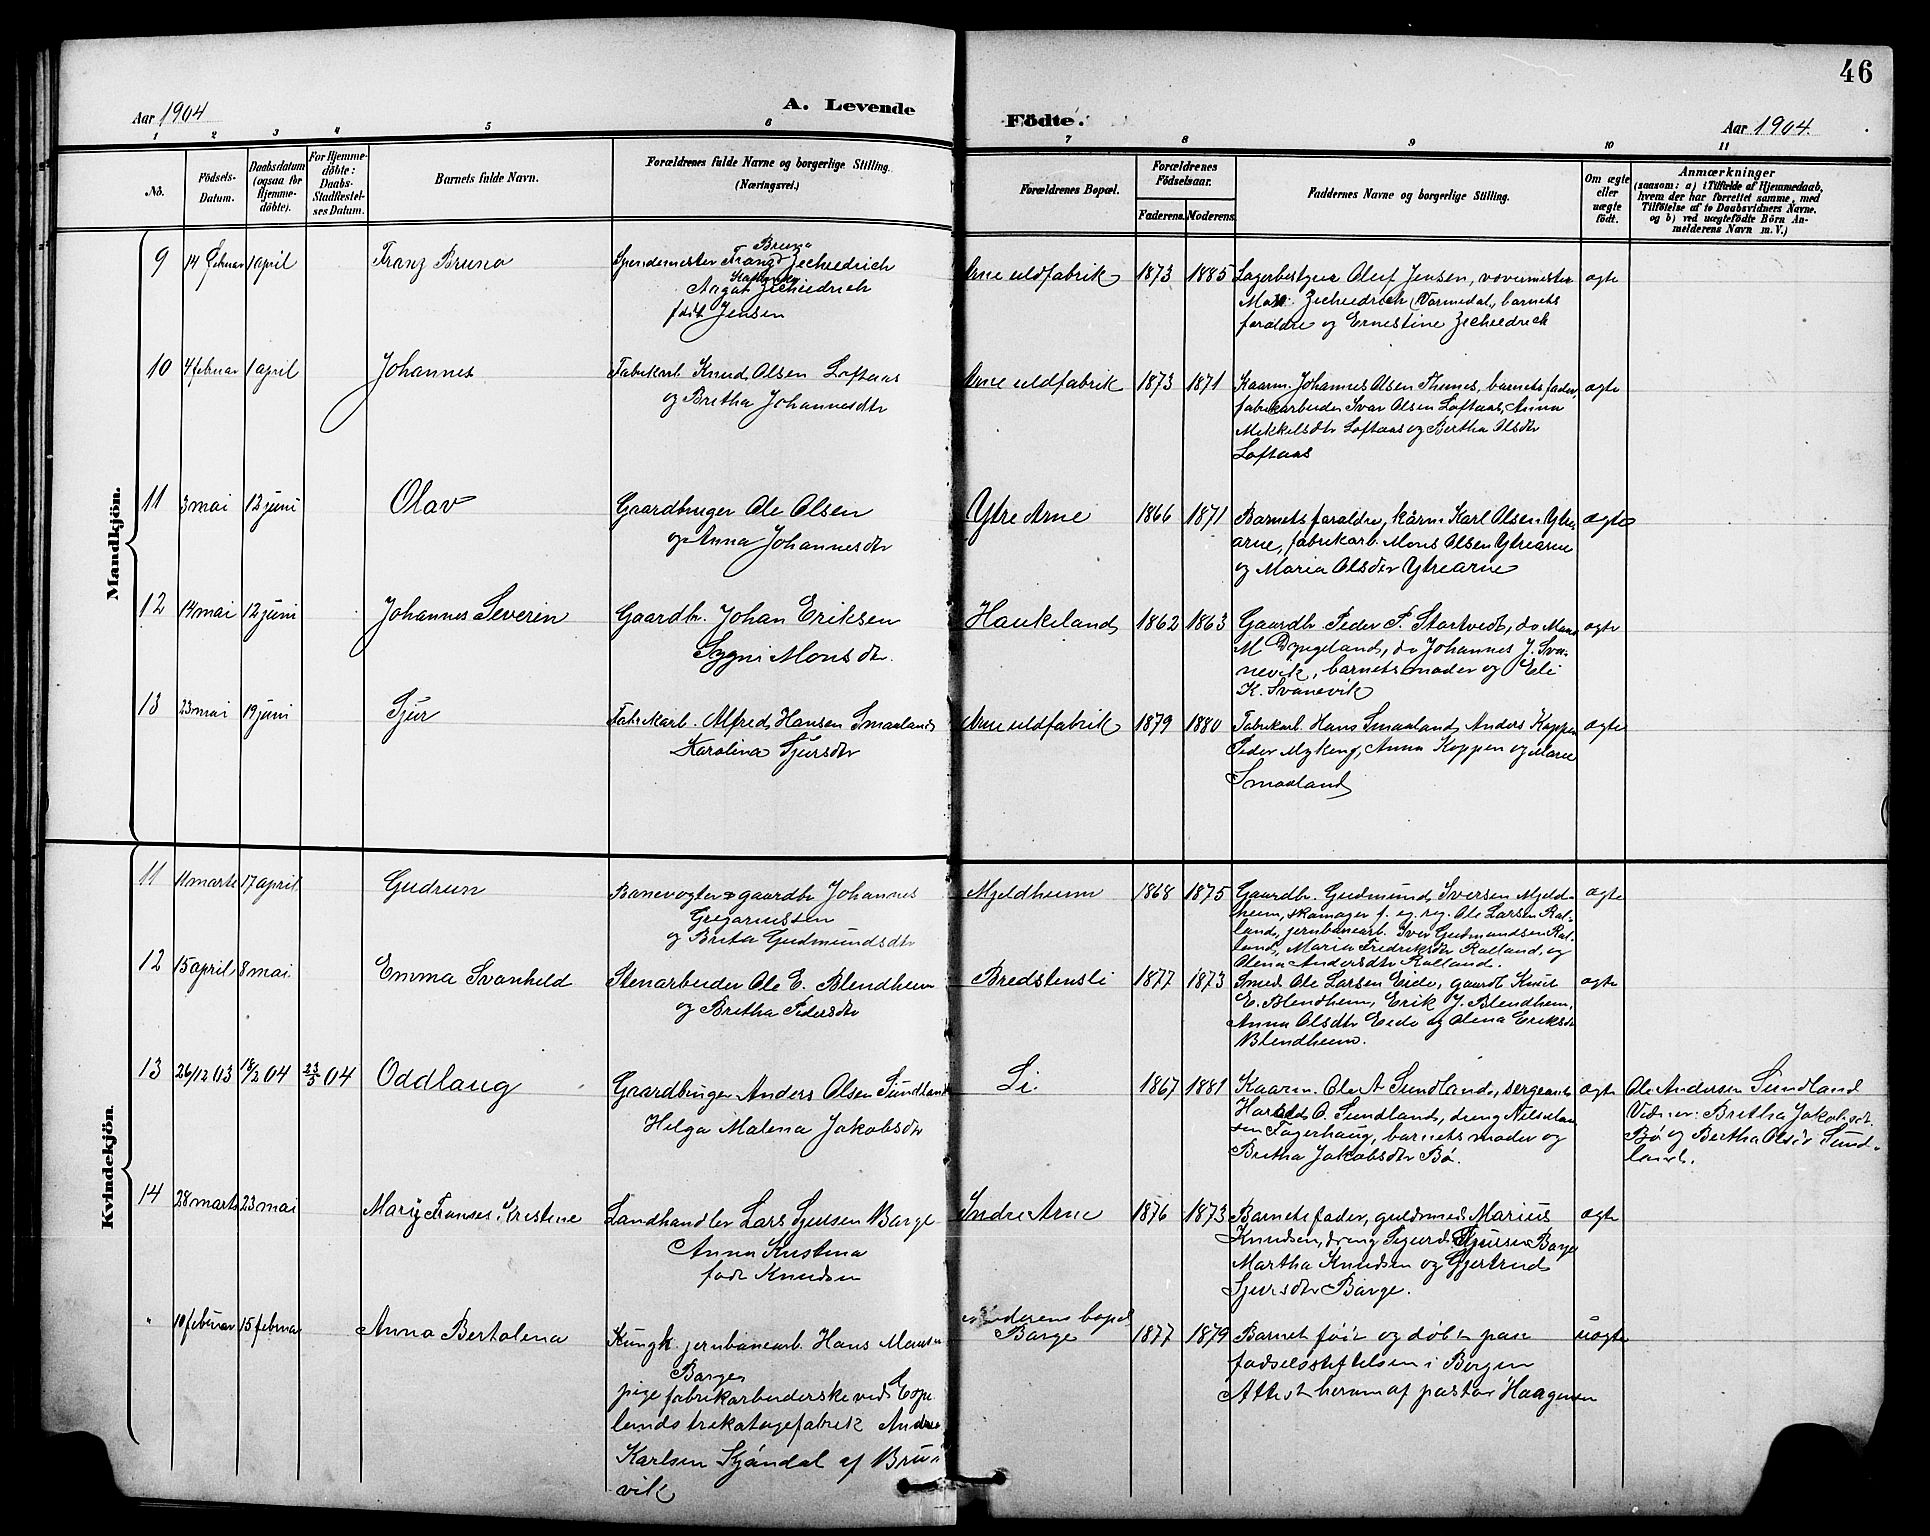 46
Aar 1904
A. Levende
Födte.
Aar 1904.
1 2 3 4 5 6 7 8 9 10 11
No.
Födsels-
Datum.
Daabsdatum
(ogsaa for
Hjemme-
döbte).
For Hjemme-
döbte:
Daabs
Stadfæstel-
ses Datum.
Barnets fulde Navn.
Forældrenes fulde Navne og borgerlige Stilling.
(Næringsvei.)
Forældrenes Bopæl.
Forældrenes
Födselsaar.
Faderens. Moderens.
Faddernes Navne og borgerlige Stilling.
Om ægte
eller
uægte
födt.
Anmærkninger
(saasom: a) i Tilfælde af Hjemmedaab,
hvem der har forrettet samme, med
Tilföielse af to Daabsvidners Navne,
og b) ved uægtefödte Börn An-
melderens Navn m. V.)
Mandkjön.
9 14 februar 1 april Franz Bruno
Bruno
Spindemester Franz Zschiedrich
Aagat Zschiedrich
født Jensen
Arne uldfabrik 1873 1885
Lagerbestyrer Oluf Jensen, vævermester
Max Zschiedrich, Varmedal, barnets
forældre og Ernestine Zschiedrich
ægte
10 4 februar 1 april Johannes
Fabrikarb. Knud Olsen Loftaas
og Bretha Johannesdtr
Arne uldfabrik 1873 1871
Kaarm. Johannes Olsen Thunes, barnets fader,
fabrikarbeider Ivar Olsen Loftaas, Anna
Mikkelsdtr Loftaas og Bertha Olsdtr
Loftaas
ægte
11 3 mai 12 juni Olav
Gaardbruger Ole Olsen
og Anna Johannesdtr
Ytre Arne 1866 1871
Barnets forældre, kårm. Karl Olsen Ytre
arne, fabrikarb. Mons Olsen Ytrearne
og Maria Olsdtr Ytrearne
ægte
12 14 mai 12 juni Johannes Severin
Gaardbr. Johan Eriksen
Sygni Monsdtr.
Haukeland 1862 1863
Gaardbr. Peder P. Startvedt, do Mons
M Dyngeland, do Johannes J. Sva-
nevik, barnets moder og Eli
K. Svanevik
ægte
13 23 mai 19 juni Sjur
Fabrikarb. Alfred Hansen Smaaland
Karolina Sjursdtr
Arne uldfabrik 1879 1880
Fabrikarb. Hans Smaaland, Anders Koppen
Peder Myking, Anna Koppen og Marie
Smaaland
ægte
Kvindekjön.
11 11 marts 17 april Gudrun
Banevogter & gaardbr Johannes
Gregoriussen
og Brita Gudmundsdtr
Mjeldheim 1868 1875
Gaardbr. Gudmund Iversen Mjeld-
heim, skomager f. eg. reg. Ole Larsen Ral-
land, jernbanearb. Iver Gudmundsen Ral-
land, Maria Fredriksdtr Ralland, og
Olena Andersdtr Ralland.
ægte
12 15 april 8 mai Emma Svanhild
Stenarbeider Ole E. Blendheim
og Bretha Pedersdtr
Bredstensli 1877 1873
Smed Ole Larsen Eide, gaardb Knut
E. Blendheim, Erik J. Blendheim,
Anna Olsdtr Eide og Olena Eriksdtr
Blendheim.
ægte
13 26/12 03 18/2 04 23/5 04 Oddlaug
Gaardbruger Anders Olsen Sundland
Helga Malena Jakobsdtr
Li 1867 1881
Kaarm. Ole A Sundland, sergeant
Harald O. Sundland, dreng Nils
Fagerhaug, barnets moder og
Bretha Jakobsdtr Bø.
ægte
Ole Andersen Sundland
Vidner: Bretha Jakobsdtr.
Bø og Bertha Olsdr Sund-
land.
14 28 marts 23 mai Mary Franses Kristine
Landhandler Lars Sjursen Borge
Anna Kristina
født Knudsen
Indre Arne 1876 1873
Barnets fader, guldsmed Marius
Knudsen, dreng Sigurd Sjursen Borge
Martha Knudsen og Gjertrud
Sjursdtr Borge.
ægte
" 10 februar 15 februar Anna Bertolena
Ungk. jernbanearb. Hans Monsen
Borge
pige fabrikarbeiderske ved Espe
lands trikotagefabrik Andrea
Karlsen Kjöndal af Bru-
vik
Moderens bopel
Borge
1877 1879
Barnet født og døbt paa
fødselsstiftelsen i Bergen
Attest herom af pastor Haagensen
uægte